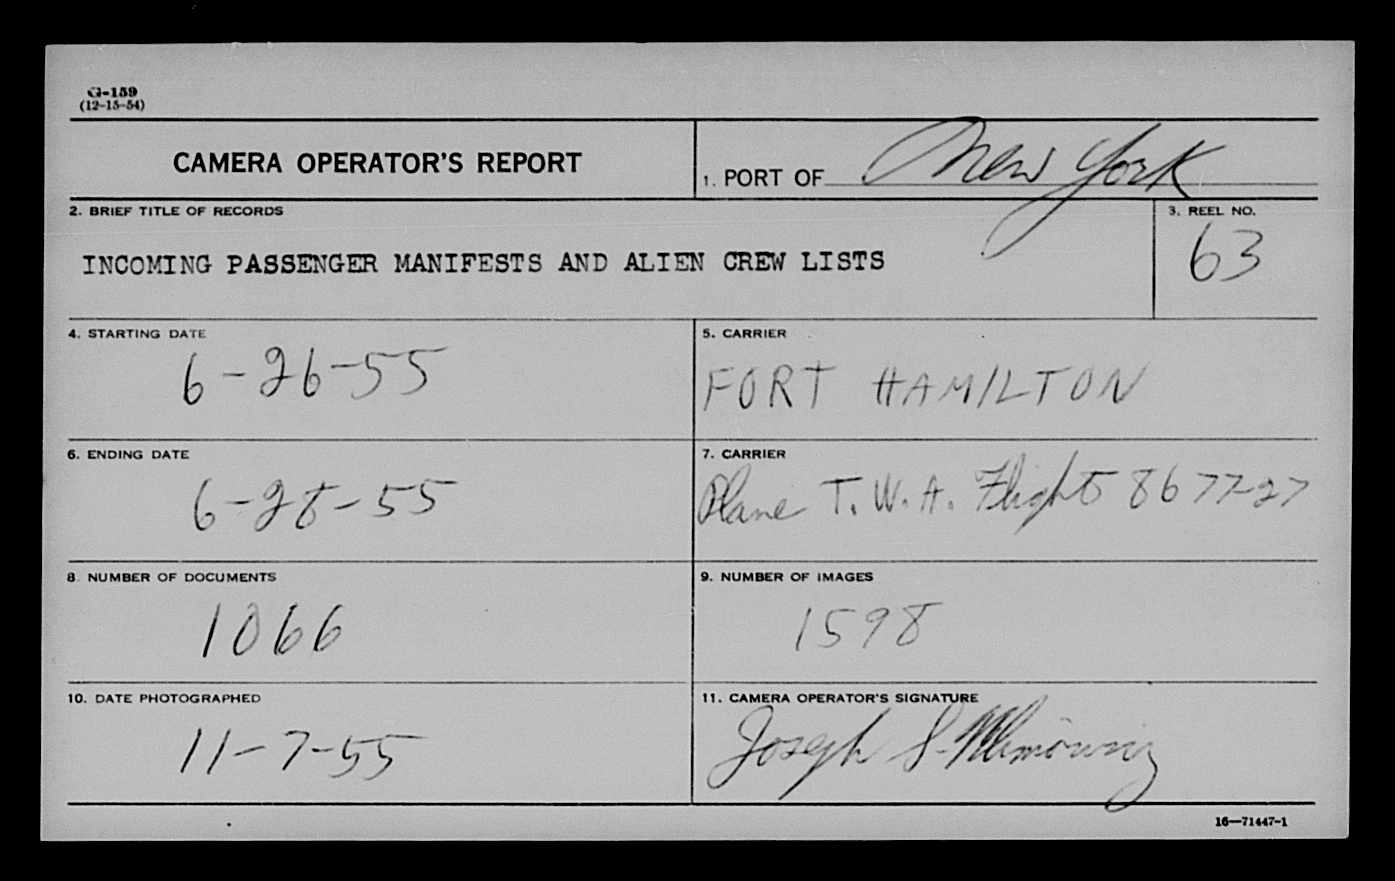 G-159
(12-15-54)
CAMERA OPERATOR'S REPORT
1. PORT OF New York
2. BRIEF TITLE OF RECORDS
INCOMING PASSENGER MANIFESTS AND ALIEN CREW LISTS
3. REEL NO.
63
4. STARTING DATE
6-26-55
5. CARRIER
FORT HAMILTON
6. ENDING DATE
6-28-55
7. CARRIER
Plane T.W.A. Flight 8677-27
8. NUMBER OF DOCUMENTS
1066
9. NUMBER OF IMAGES
1598
10. DATE PHOTOGRAPHED
11-7-55
11. CAMERA OPERATOR'S SIGNATURE
Joseph S.
16—71447-1